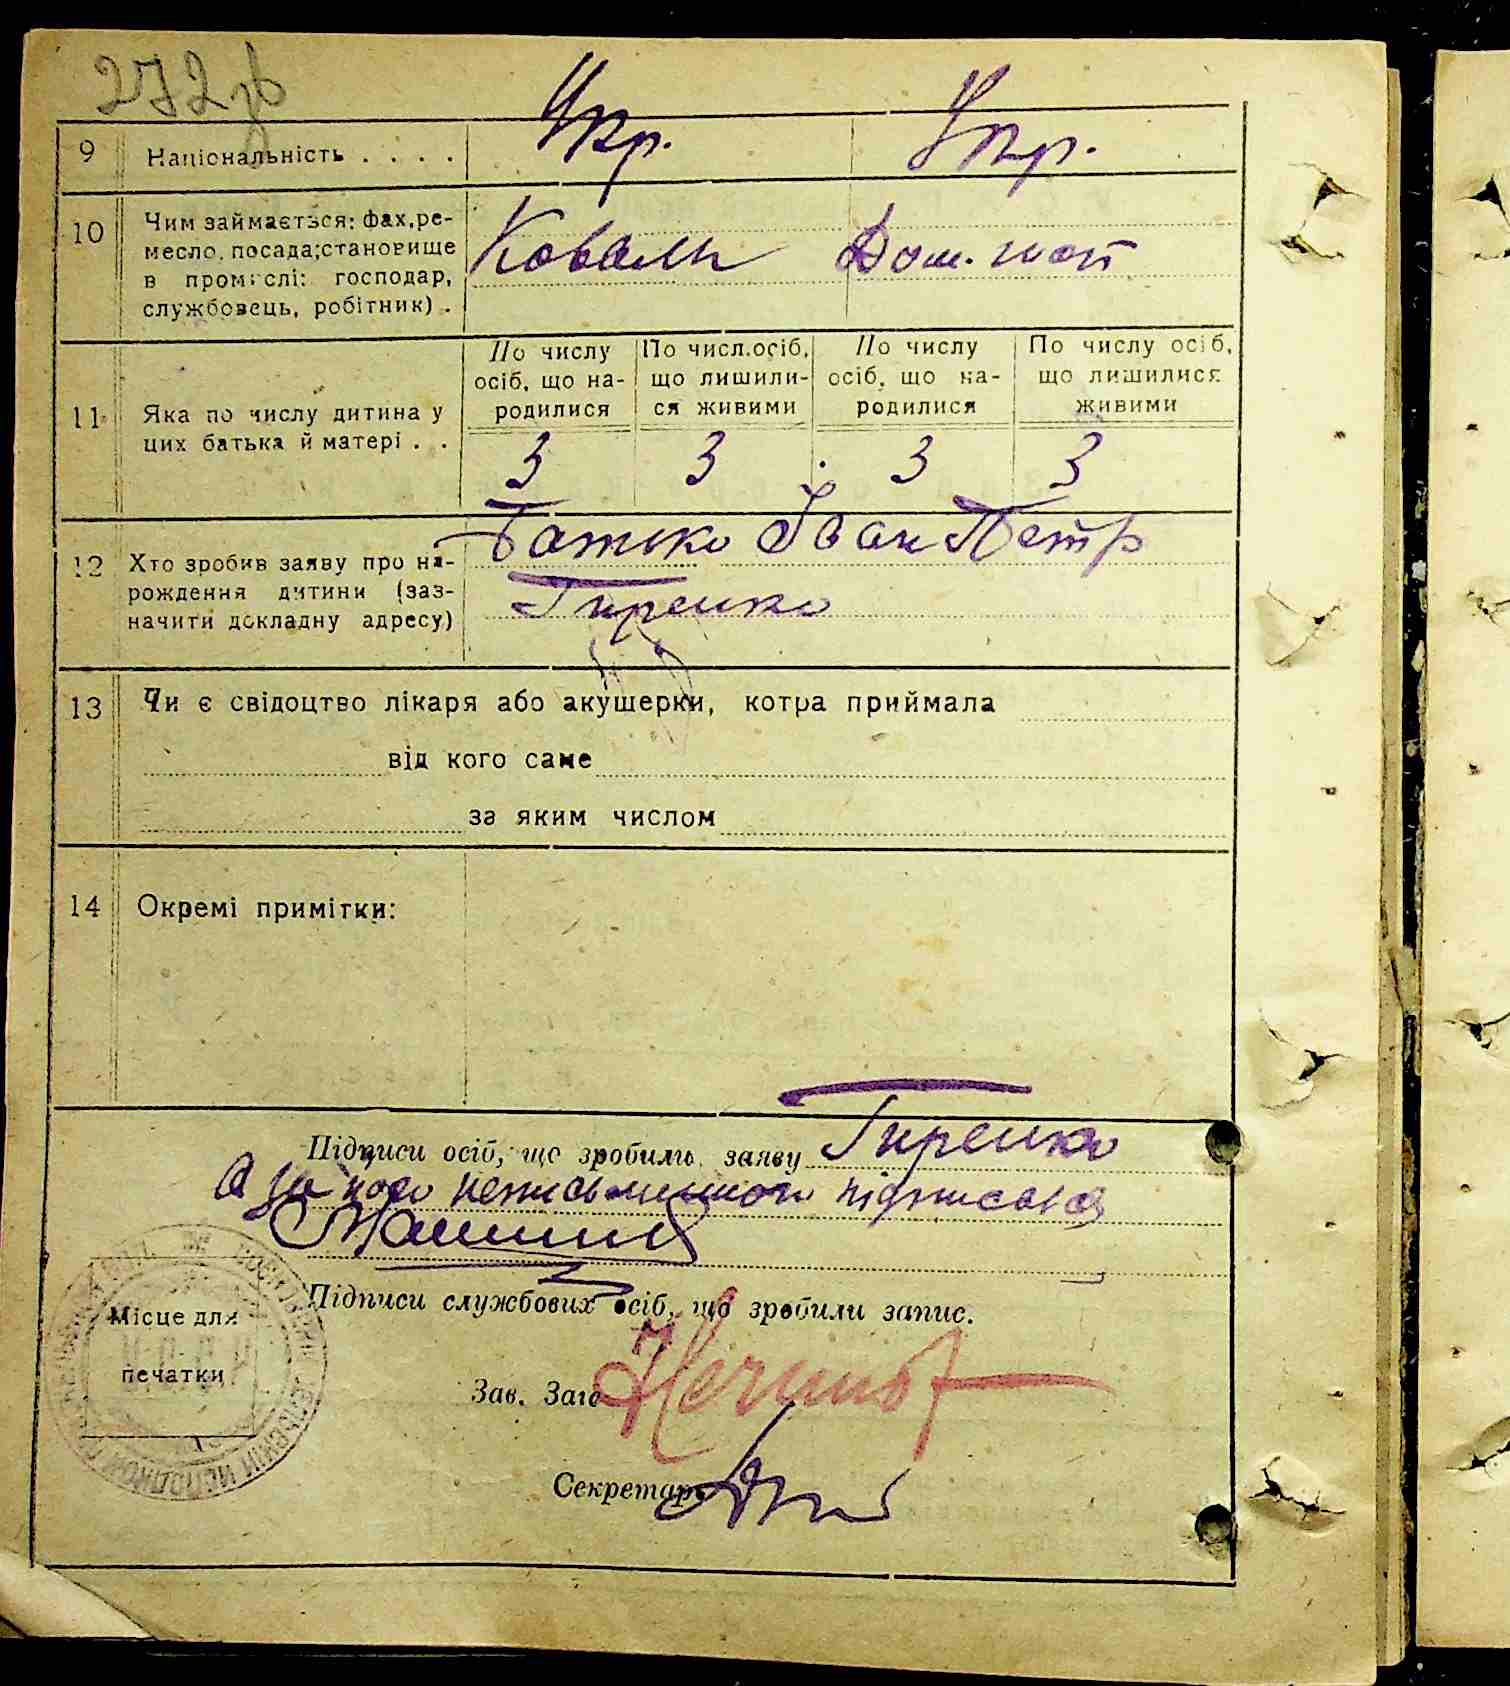 272зв
Укр. Укр.
9 Національність . . . .
10 Чим займається: фах, ре-
месло, посада; становище
в промислі: господар,
службовець, робітник) .
Коваль Дом. хот
По числу По числ. осіб, По числу По числу осіб,
осіб, що на- що лишили- осіб, що на- що лишилися
родилися ся живими родилися живими
11 Яка по числу дитина у
цих батька й матері . .
3 3 3 3
12 Хто зробив заяву про на-
рождення дитини (заз-
начити докладну адресу)
Батько Іван Петр
Гиренко
13 Чи є свідоцтво лікаря або акушерки, котра приймала
від кого саме
за яким числом
14 Окремі примітки:
Підписи осіб, що зробили заяву Гиренко
а за його неписьменного підписався
Підписи службових осіб, що зробили запис.
Місце для
печатки
Зав. Заго
Секретарь